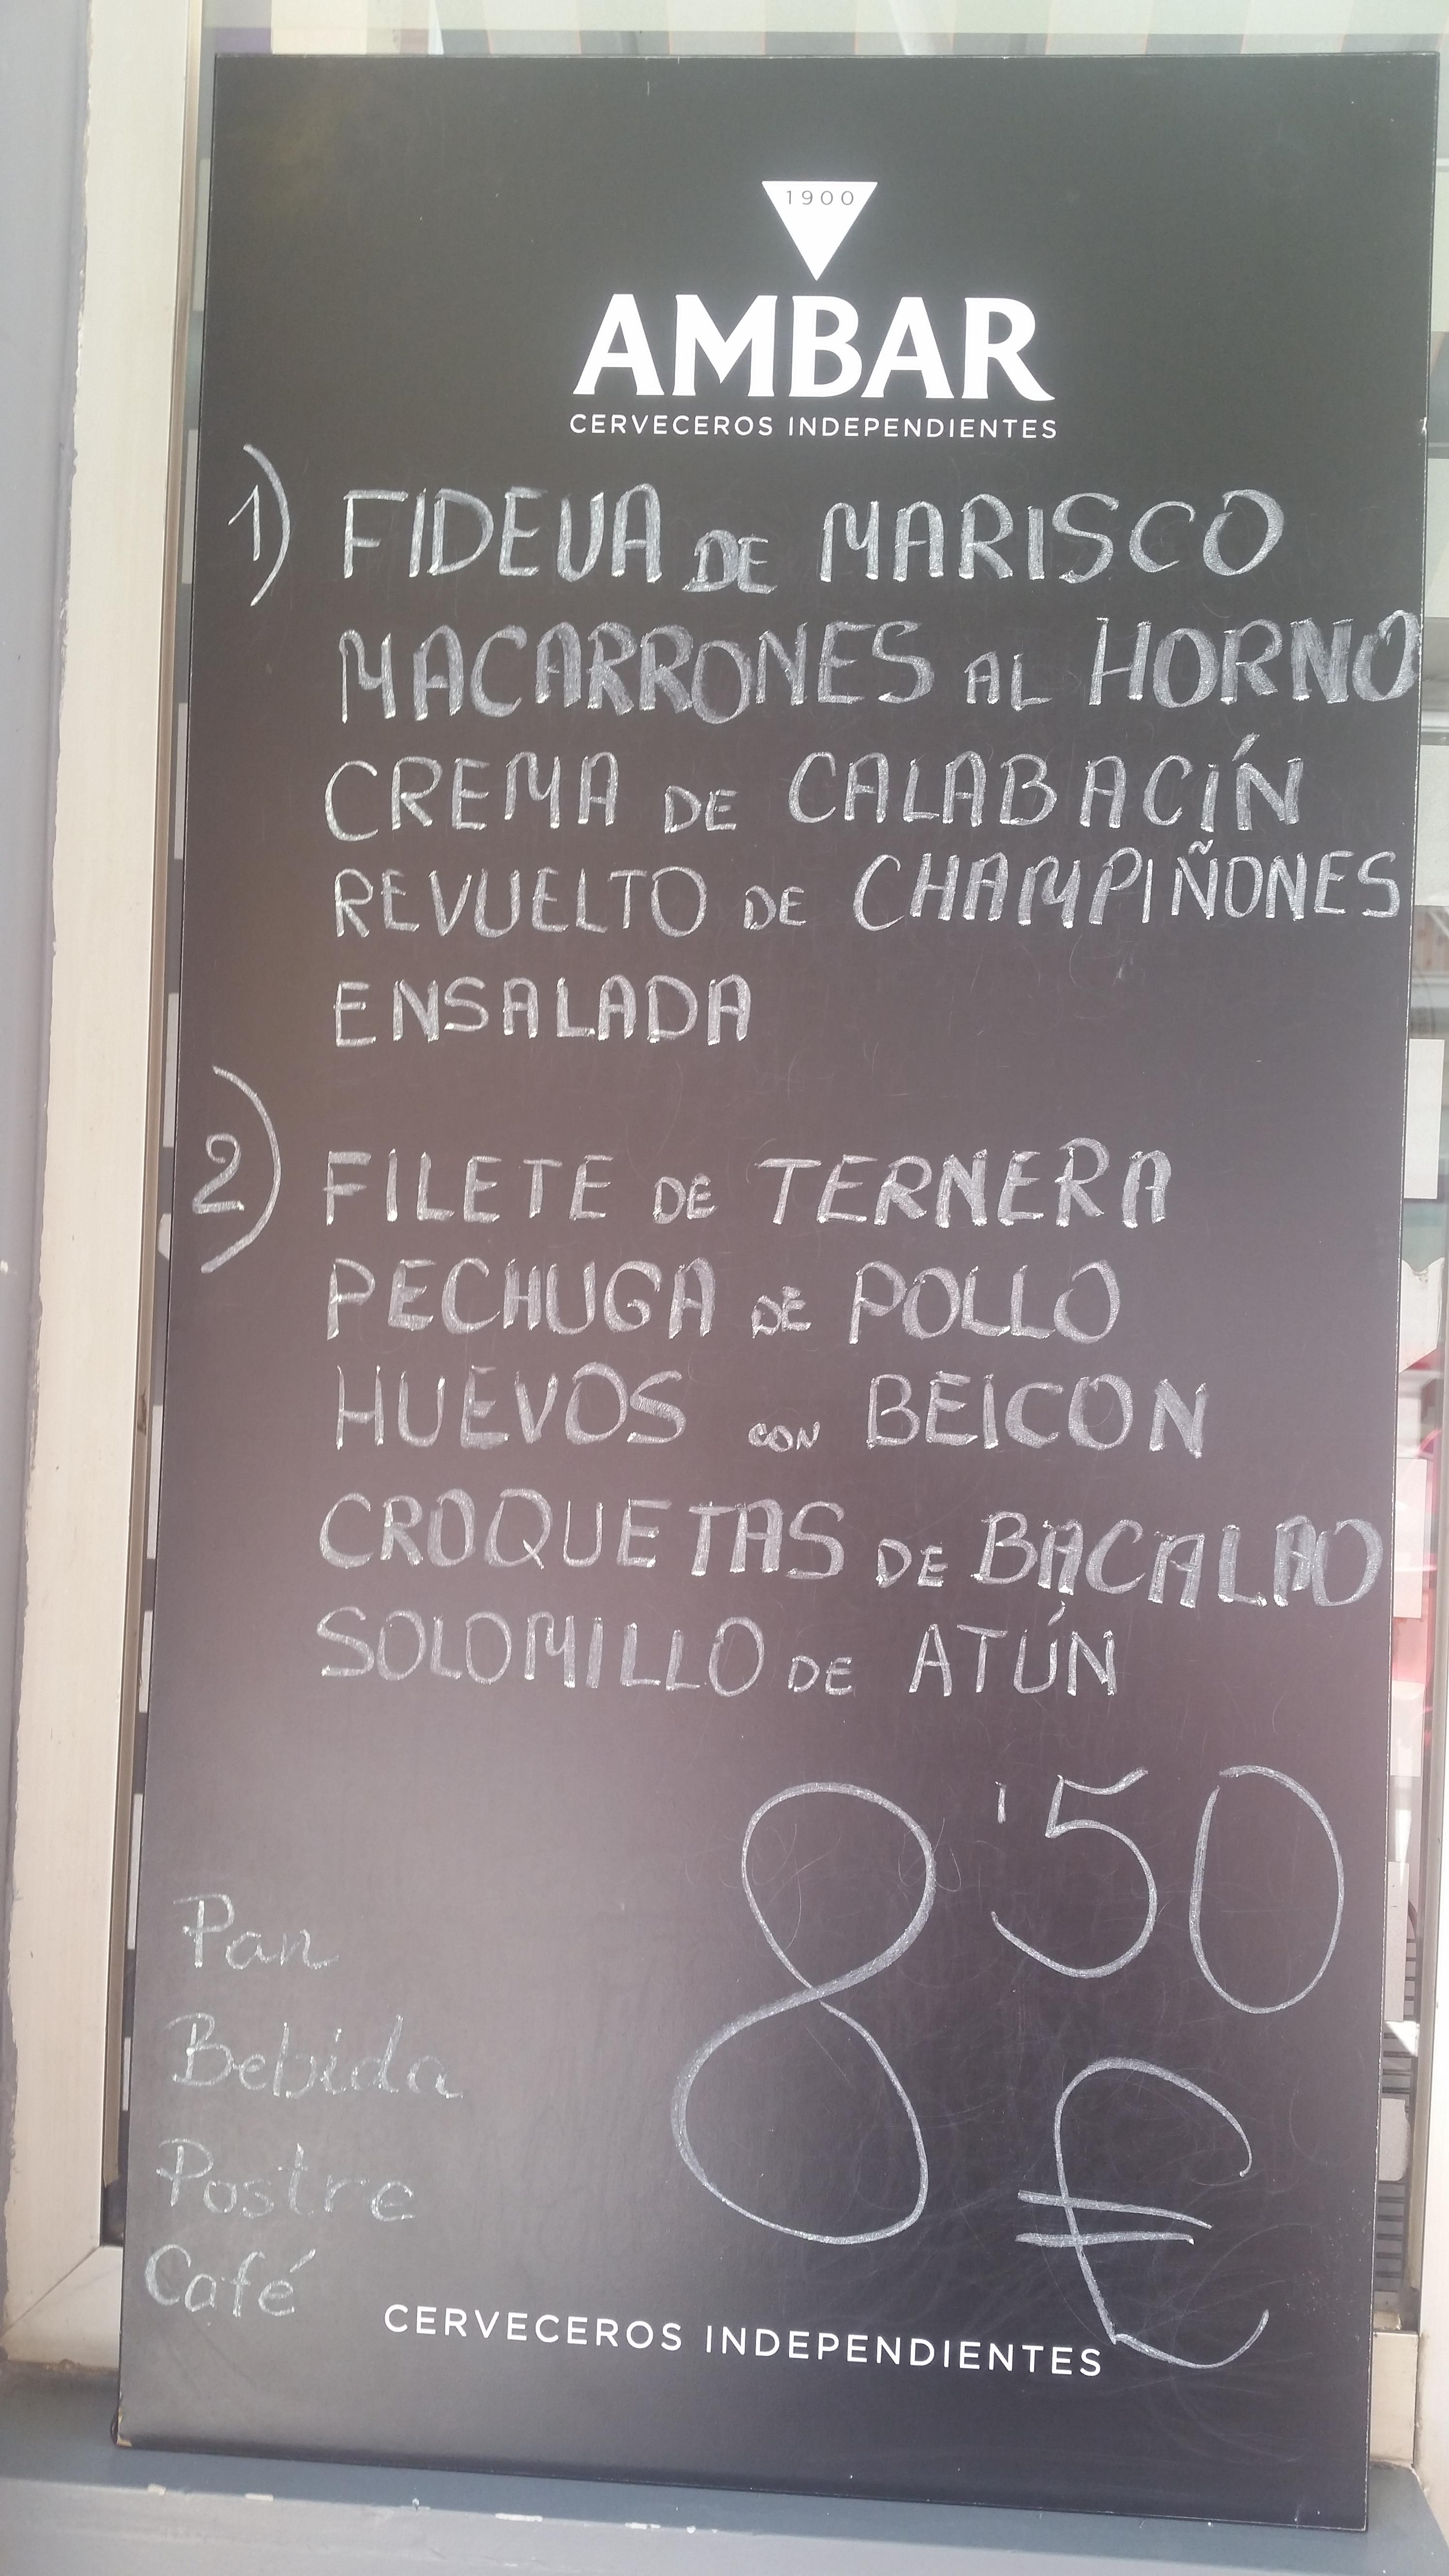 1900
AMBAR
CERVECEROS INDEPENDIENTES
1) FIDEUA DE MARISCO
MACARRONES AL HORNO
CREMA DE CALABACÍN
REVUELTO DE CHAMPIÑONES
ENSALADA
2) FILETE DE TERNERA
PECHUGA DE POLLO
HUEVOS CON BEICON
CROQUETAS DE BACALAO
SOLOMILLO DE ATÚN
8'50 €
Pan
Bebida
Postre
Café
CERVECEROS INDEPENDIENTES